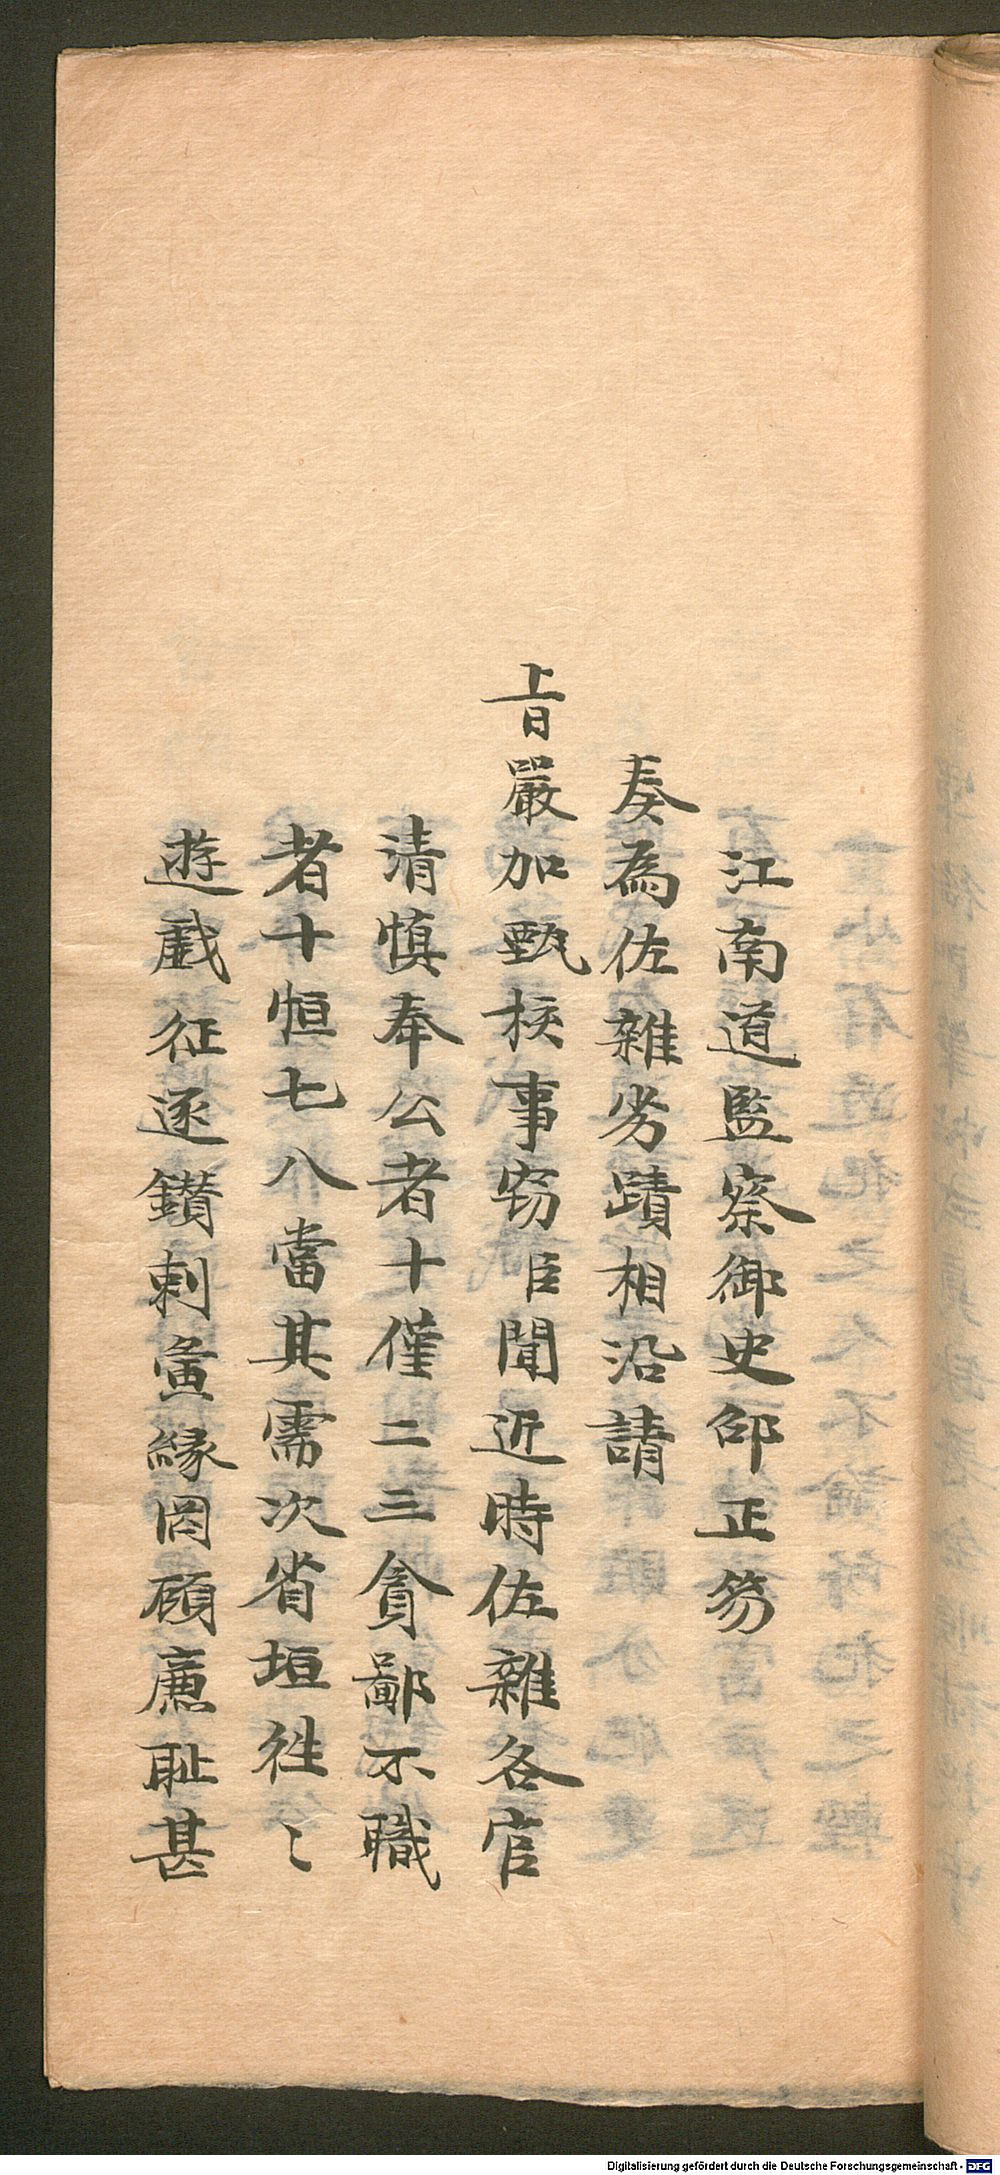 江南道監察御史邵正笏
奏為佐雜劣蹟相沿請
旨嚴加甄挍事窃臣聞近時佐雜各官
清慎奉公者十僅二三貪鄙不職
者十恒七八當其需次省垣徃〻
遊戯征逐鑚刺夤緣罔顧廉耻甚
Digitalisierung gefördert durch die Deutsche Forschungsgemeinschaft - DFG